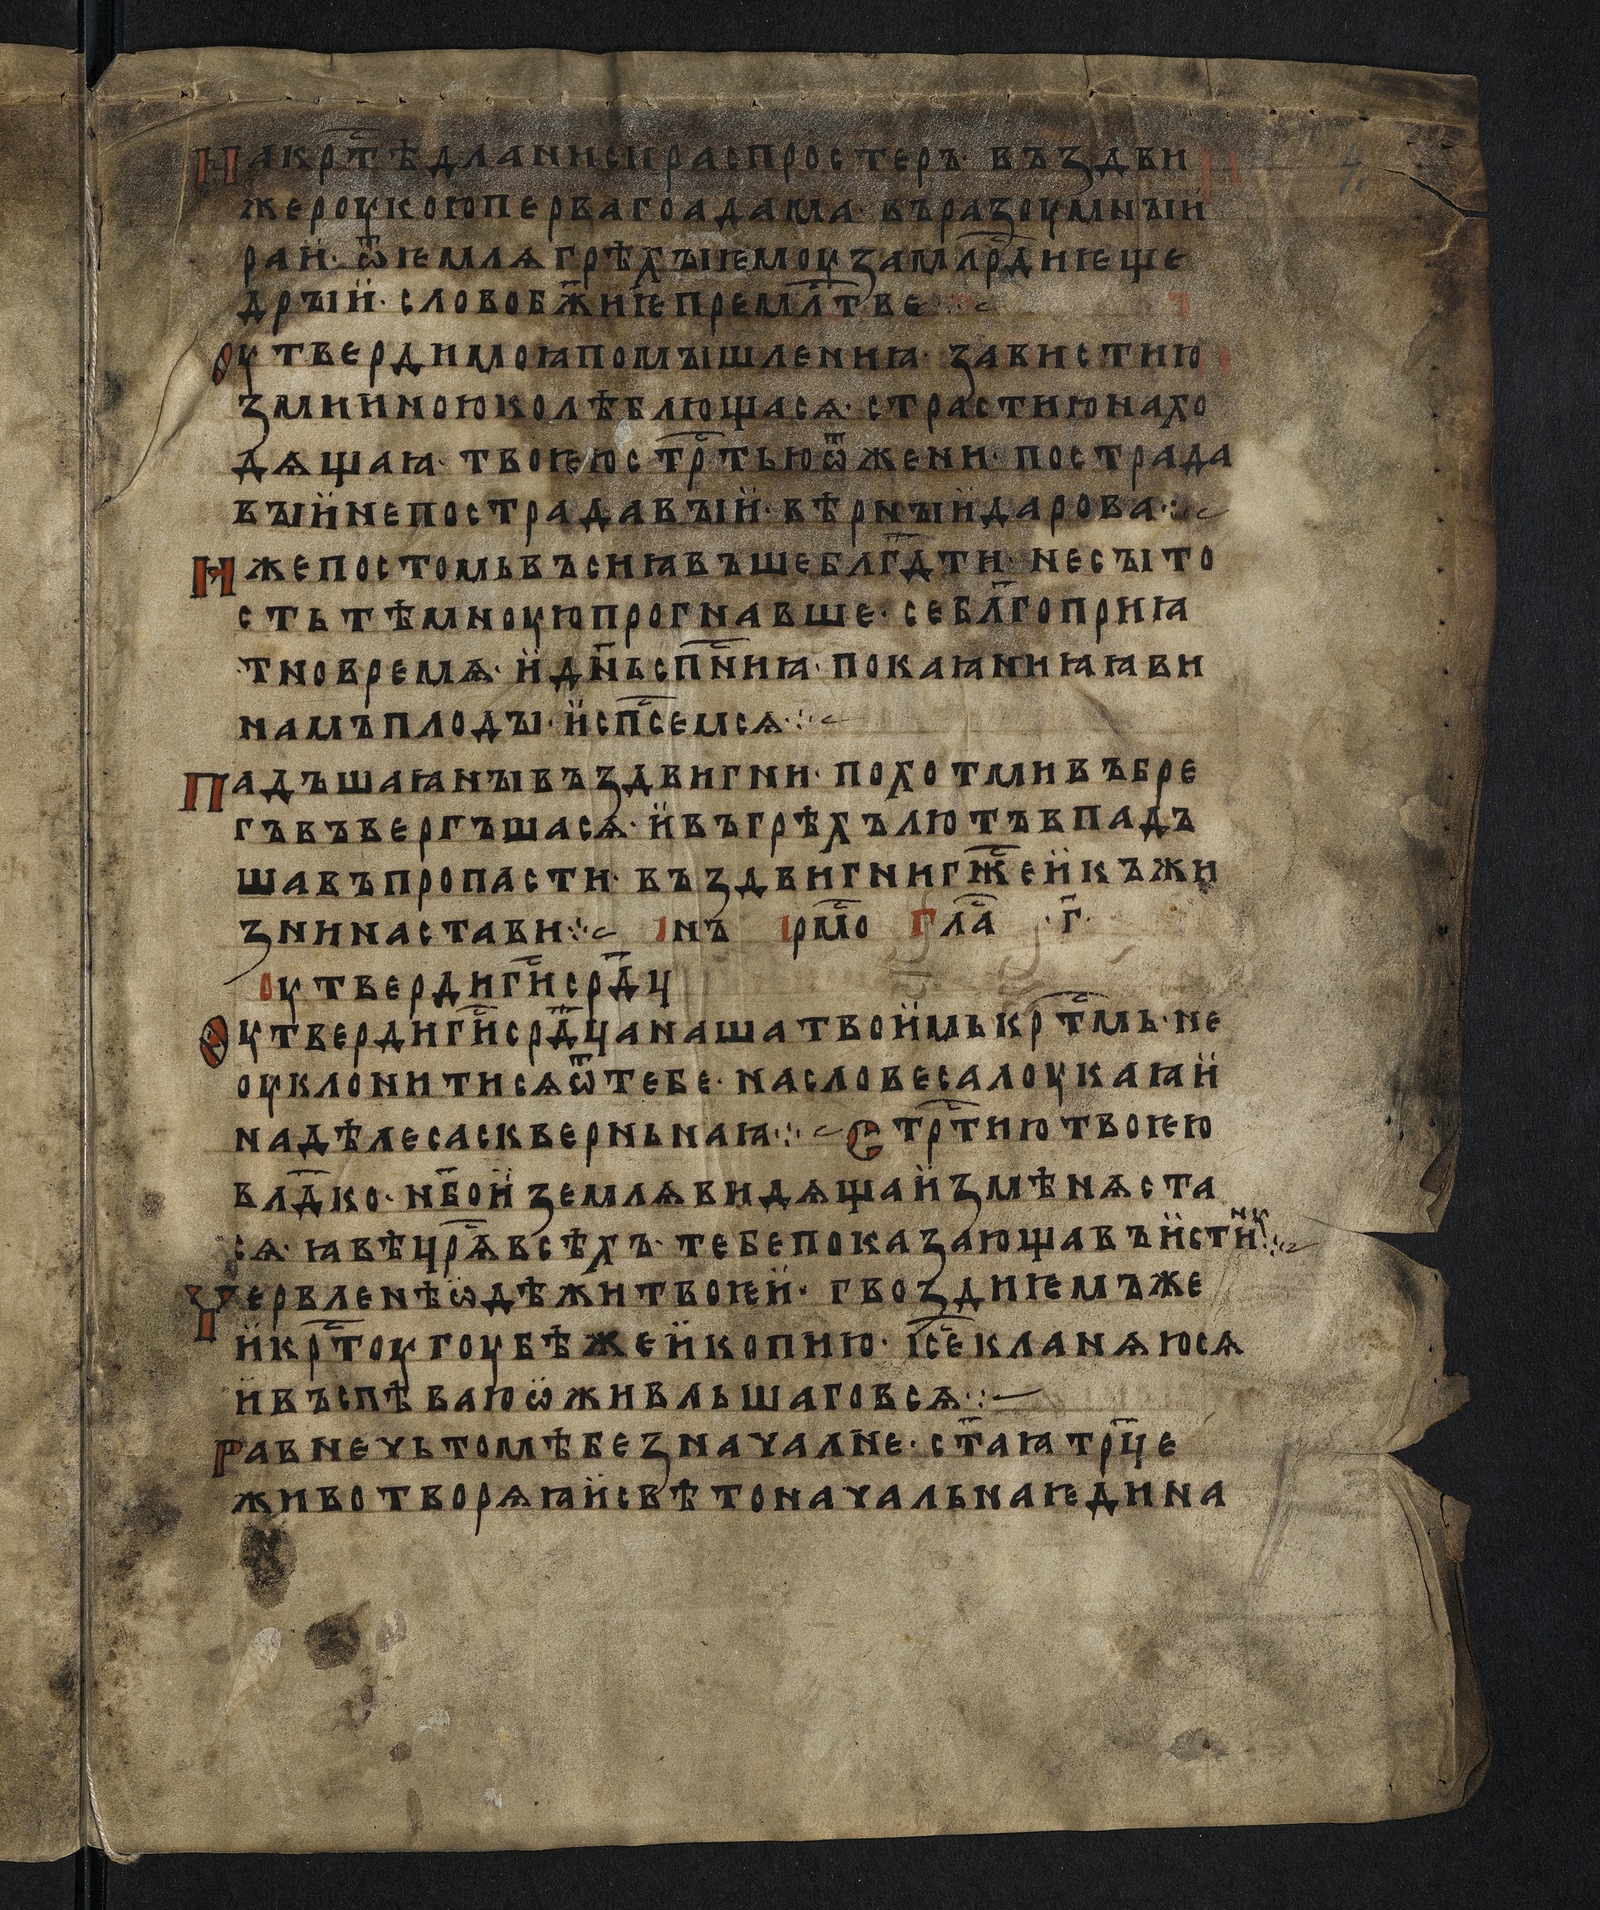 На кр҃тѣ длани си распростеръ· въздви
же роукою перваго адама· въ разоумныӥ
раӥ· ѿѥмлѧ грѣхы ѥмоу за млр҃диѥ ще
дрыӥ· слово бж҃иѥ прем҃лтве
Оутверди моꙗ помышлениꙗ· завистию
змииною колѣблющасѧ· страстию нахо
дѧщаꙗ· твоѥю стрт҃тью ѿжени· пострада
выӥ не пострадавыӥ· вѣрныӥ дарова·:
Иже постомь въсиꙗвъше блгд҃ти· несыто
сть тѣмноую прогнавше· се бл҃гоприꙗ
тно времѧ· ӥ дн҃ь сп҃ниꙗ· покаꙗниꙗ ꙗви
намъ плоды· ӥ сп҃семсѧ·:
Падъшаꙗ ны въздвигни· похотми въ бре
гъ въвергъшасѧ· ӥ въ грѣхъ лютъ впадъ
ша въ пропасти· въздвигни гж҃е ӥ къ жи
зни настави·: інъ ірм҃о гл҃а ·г҃·
оутверди ги҃ срд҃ц
Оутверди ги҃ срд҃ца наша твоӥмь крт҃мь· не
оуклонитисѧ ѿ тебе· на словеса лоукаꙗӥ
на дѣлеса скверньнаꙗ·: Стрт҃тию твоѥю
влд҃ко· нб҃о ӥ землѧ видѧща ӥзмѣнѧста
сѧ· ꙗвѣ цр҃ѧ всѣхъ· тебе показающа въ ӥстин
Червленѣ ѡдѣжи твоѥӥ· гвоздиѥмъ же
ӥ крт҃оу гоубѣ же ӥ копию· іс҃е кланѧюсѧ
ӥ въспѣваю ѡживльшаго всѧ·:
Равне чьтомѣ безначалне· ст҃аꙗ трц҃е
животворѧꙗӥ свѣтоначальна ѥдина